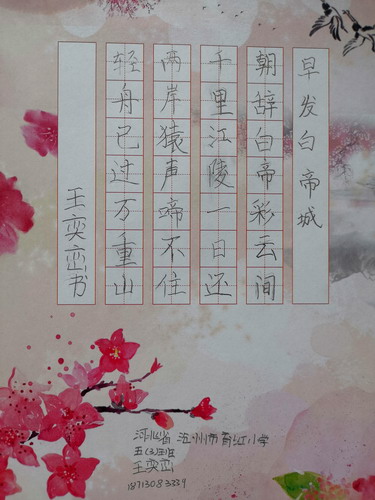 早发白帝城
朝辞白帝彩云间
千里江陵一日还
两岸猿声啼不住
轻舟已过万重山
王奕峦书
河北省沧州市育红小学
五(3)班
王奕峦
18713083339